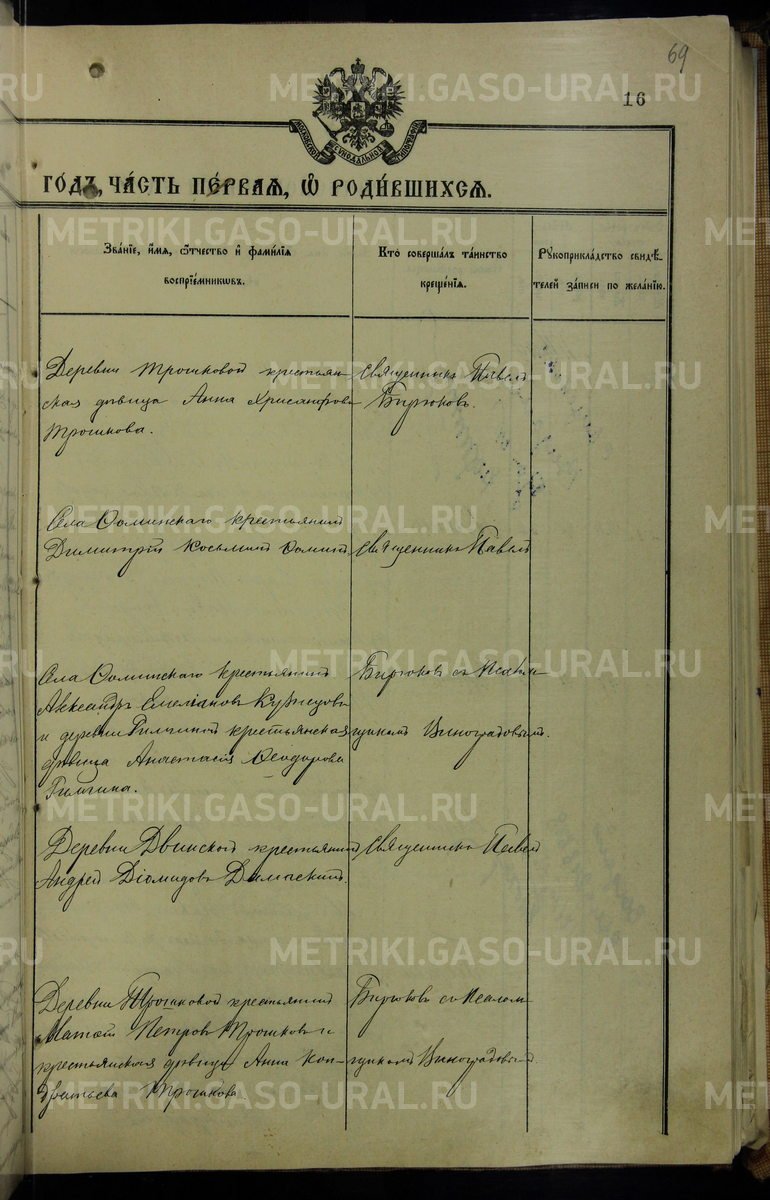 69
16
МОСКОВСКОЙ СѴНОДАЛЬНОЙ ТИПОГРАФІИ
ГО́ДЪ, ЧА́СТЬ ПЕ́РВАѦ, Ѡ҆ РОДИ́ВШИХСѦ.
Зва́нїе, и҆́мѧ, ѻ҆́тчество и҆ фами́лїѧ
воспрїе́мникѡвъ.
Кто̀ соверша́лъ та́инство
креще́нїѧ.
Рꙋкоприкла́дство свидѣ́-
телей за́писи по жела́нїю.
Деревни Трошковой крестьян-
ская дѣвица Анна Хрисанфова
Трошкова.
Священникъ Павелъ
Бирюковъ.
Села Фоминскаго крестьянинъ
Димитрій Косьминъ Фоминъ
Священникъ Павелъ
Села Фоминскаго крестьянинъ
Александръ Емеліановъ Кузнецовъ
и деревни крестьянская
дѣвица Анастасія Ѳеодорова
Бирюковъ съ псалом-
щикомъ Виноградовымъ.
Деревни Двинской крестьянинъ
Андрей Діомидовъ
Священникъ Павелъ
Деревни Трошковой крестьянинъ
Петровъ Трошковъ и
крестьянская дѣвица Анна Кон-
дратьева Трошкова.
Бирюковъ съ псалом-
щикомъ Виноградовымъ
METRIKI.GASO-URAL.RU